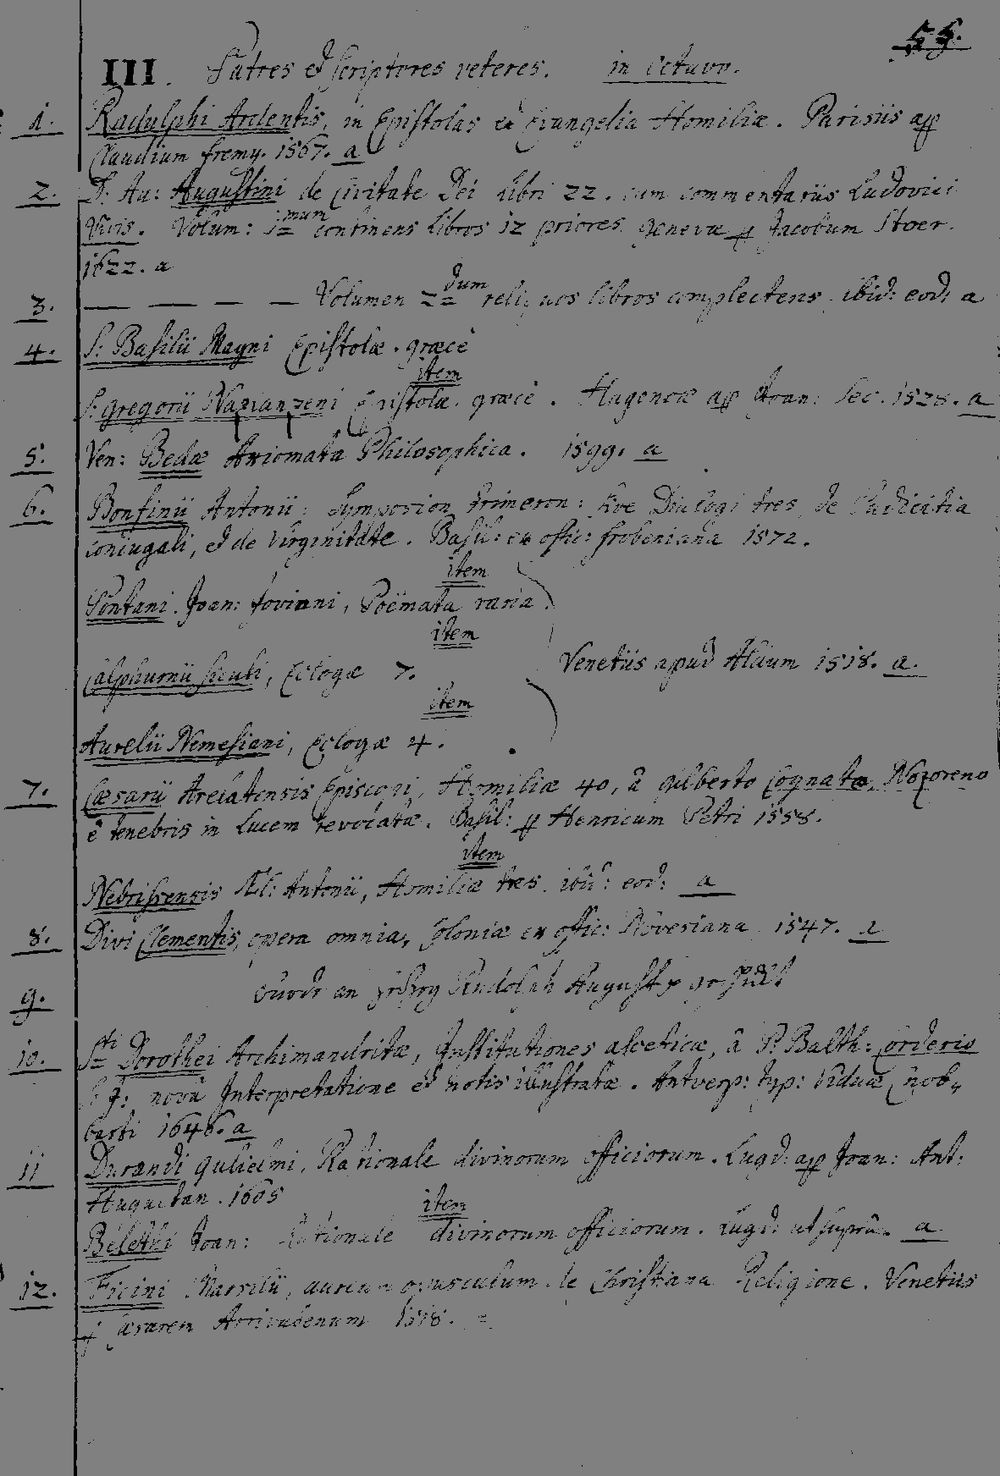 55.
III. Patres et Scriptores veteres. in Octavo.
1. Radulphi Ardentis, in Epistolas et Evangelia Homiliæ. Parisiis ap
Claudium fremy. 1567. a
2. D. Au: Augustini de Civitate Dei libri 22. cum commentariis Ludovici
Vivis. Volum: 1mum continens libros 12 priores genevæ p Jacobum Stoer.
1622. a
3. — — — — — Volumen 2dum reliquos libros complectens. ibid: eod: a
4. S: Basilii Magni Epistolæ. græcè
item
S: gregorii Nazianzeni Epistolæ. græcè. Hagenoæ ap Joan: Sec. 1528. a
5. Ven: Bedæ Axiomata Philosophica. 1599. a
6. Bonfinii Antonii: Symposion trimeron: sive Dialogi tres, de Pudicitia
coniugali, et de Virginitate. Basil: ex offic: frobeniana 1572.
item
Pontani. Joan: Joviani, Poëmata varia
item
Calphurnii Siculi, Eclogæ 7. Venetiis apud Aldum 1518. a.
item
Aurelii Nemesiani, Eclogæ 4.
7. Cæsarii Arelatensis Episcopi, Homiliæ 40, à gilberto Cognato, Nozoreno
è tenebris in lucem revocatæ. Basil: p Henricum Petri 1558.
item
Nebrissensis Æl: Antonii, Homiliæ tres. ibid: eod: a
8. Divi Clementis, opera omnia, Coloniæ ex offic: Novesiana 1547. a
9. an Rudolph August
10. Sti Dorothei Archimandritæ, Institutiones asceticæ, â P. Balth: Corderio
S. J: novâ Interpretatione et notis illustratæ. Antverp: typ: viduæ Cnob-
barti 1646. a
11 Durandi gulielmi, Rationale divinorum officiorum. Lugd: ap Joan: Ant:
Huguetan. 1605
item
Belethi Joan: Rationale divinorum officiorum. Lugd: ut suprâ. a
12. Ficini Marsilii, aureum opusculum de Christiana Religione. Venetiis
p Cæsarem Arrivabenum 1518.